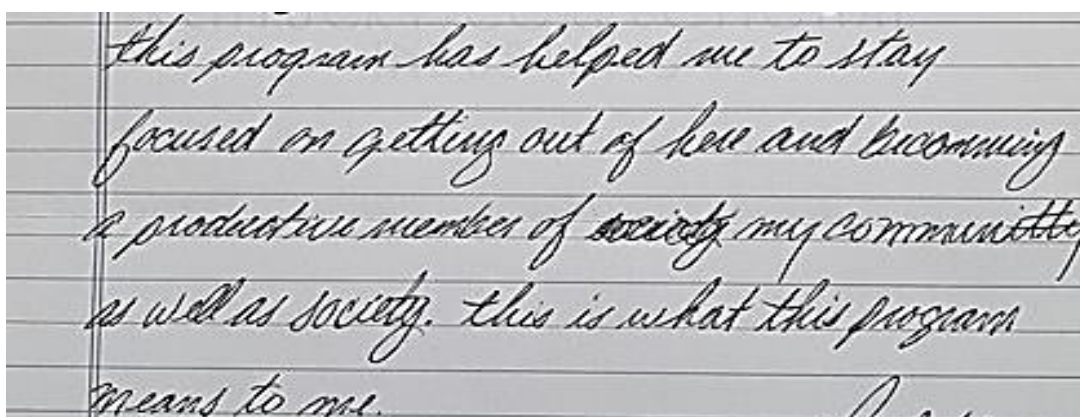 this program has helped me to stay
focused on getting out of here and becomming
a productive member of society my communitty
as well as society. this is what this program
means to me.